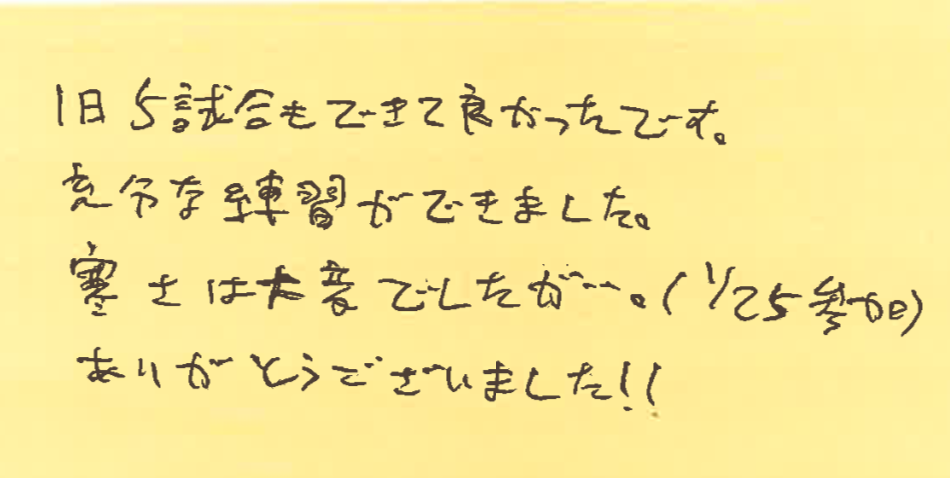 1日5試合もできて良かったです。
充分な練習ができました。
寒さは大変でしたが…。(1/25参加)
ありがとうございました!!